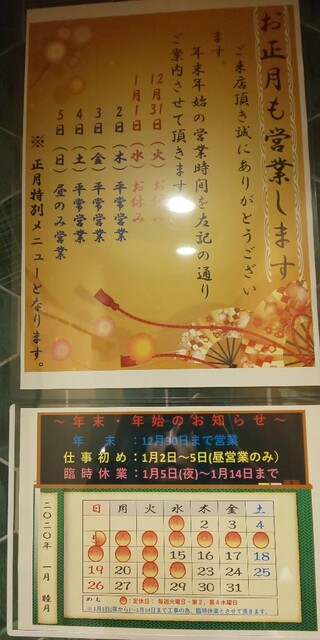 お正月も営業します
ご来店頂き誠にありがとうござい
ます。
年末年始の営業時間を左記の通り
ご案内させて頂きます
12月31日（火）お休み
1月1日（水）お休み
2日（木）平常営業
3日（金）平常営業
4日（土）平常営業
5日（日）昼のみ営業
※正月特別メニューとなります。
～年末・年始のお知らせ～
年　末　：12月30日まで営業
仕事初め：1月2日～5日(昼営業のみ)
臨時休業：1月5日(夜)～1月14日まで
二〇二〇年　一月　睦月
日 月 火 水 木 金 土
2 3 4
5
15 16 17 18
19 20 23 24 25
26 27 29 30 31
めも　：定休日： 毎週火曜日・第２、第４水曜日
※1月5日(夜から)～1月14日まで工事の為、臨時休業とさせて頂きます。